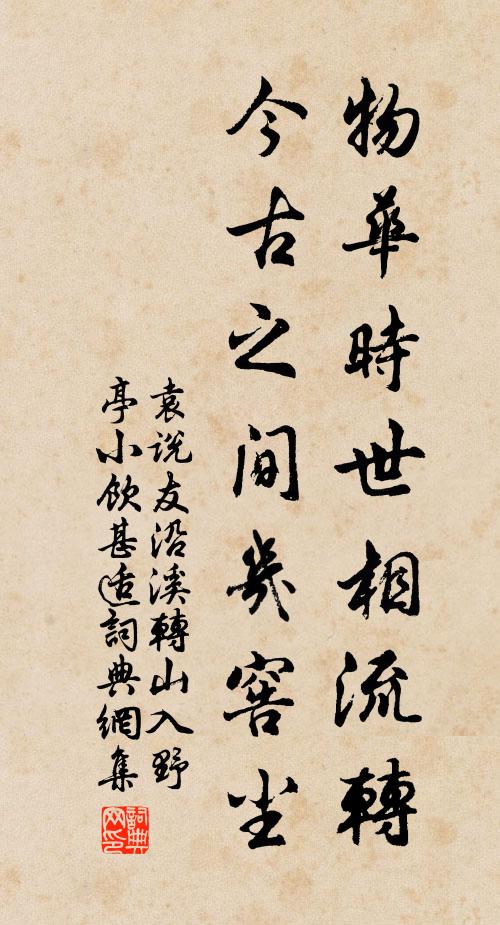 物華時世相流轉
今古之間幾窖尘
袁説友沿溪轉山入野
亭小飲甚适詞典網集
詞典网印